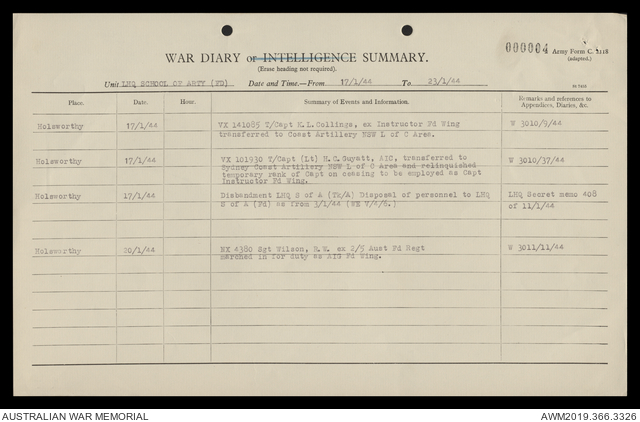 000004 Army Form C. 2118
(adapted.)
WAR DIARY or INTELLIGENCE SUMMARY.
(Erase heading not required).
Unit LHQ SCHOOL OF ARTY (FD) Date and Time.—From 17/1/44 To 23/1/44
Place. Date. Hour. Summary of Events and Information. Remarks and references to
Appendices, Diaries, &c.
Holsworthy 17/1/44 VX 141085 T/Capt H.L.Collings, ex Instructor Fd Wing W 3010/9/44
transferred to Coast Artillery NSW L of C Area.
Holsworthy 17/1/44 VX 101930 T/Capt (Lt) H.C.Guyatt, AIC, transferred to W 3010/37/44
Sydney Coast Artillery NSW L of C Area and relinquished
temporary rank of Capt on ceasing to be employed as Capt
Instructor Fd Wing.
Holsworthy 17/1/44 Disbandment LHQ S of A (Tk/A) Disposal of personnel to LHQ LHQ Secret memo 408
S of A (Fd) as from 3/1/44 of 11/1/44
Holsworthy 20/1/44 NX 4380 Sgt Wilson, R.W. ex 2/5 Aust Fd Regt W 3011/11/44
marched in for duty as AIG Fd Wing.
AUSTRALIAN WAR MEMORIAL AWM2019.366.3326